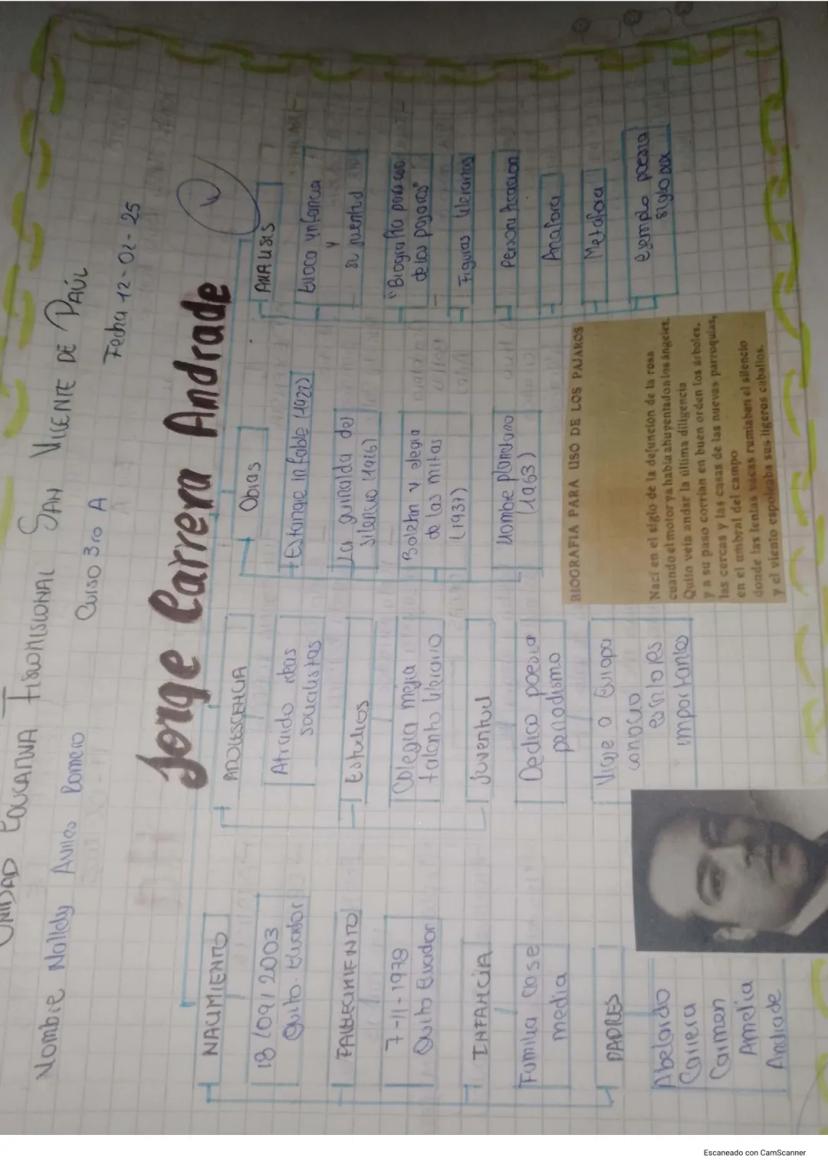 UNIDAD EDUCATIVA FISCOMISIONAL SAN VICENTE DE PAÚL
Nombre Nallely Aviles Romero Curso 3ro A Fecha 12-02-25
Jorge Carrera Andrade
NACIMIENTO
18/09/2003
Quito-Ecuador
FALLECIMIENTO
7-11-1978
Quito Ecuador
INFANCIA
Familia case
media
PADRES
Abelardo
Carrera
Carmen
Amelia
Andrade
ADOLESCENCIA
Atraido ideas
socialistas
Estudios
Colegio mejia
talento literario
Juventud
Dedico poesia
periodismo
Viaje a Europa
conocio
escritores
importantes
Obras
Estanque inefable (1922)
La guirnalda del
silencio (1926)
Boletin y elegia
de las mitas
(1937)
Hombre planetario
(1963)
ANALISIS
Evoca infancia
y
su juventud
"Biografia para uso
de los pajaros"
Figuras literarias
Personificacion
Anafora
Metafora
ejemplo poesia
siglo xx
BIOGRAFIA PARA USO DE LOS PAJAROS
Nací en el siglo de la defunción de la rosa
cuando el motor ya había ahuyentado a los ángeles.
Quito veía andar la última diligencia
y a su paso corrían en buen orden los árboles,
las cercas y las casas de las nuevas parroquias,
en el umbral del campo
donde las lentas vacas rumiaban el silencio
y el viento espoleaba sus ligeros caballos.
Escaneado con CamScanner